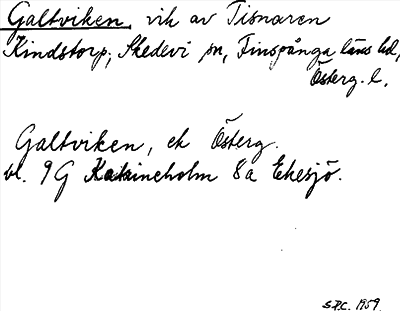 Galtviken, vik av Tisnaren
Kindstorp, Skedevi sn, Finspånga läns hd,
Österg. l.
Galtviken, ek Österg.
bl. 9G Katrineholm 8a Ekesjö.
S.P.C. 1959.